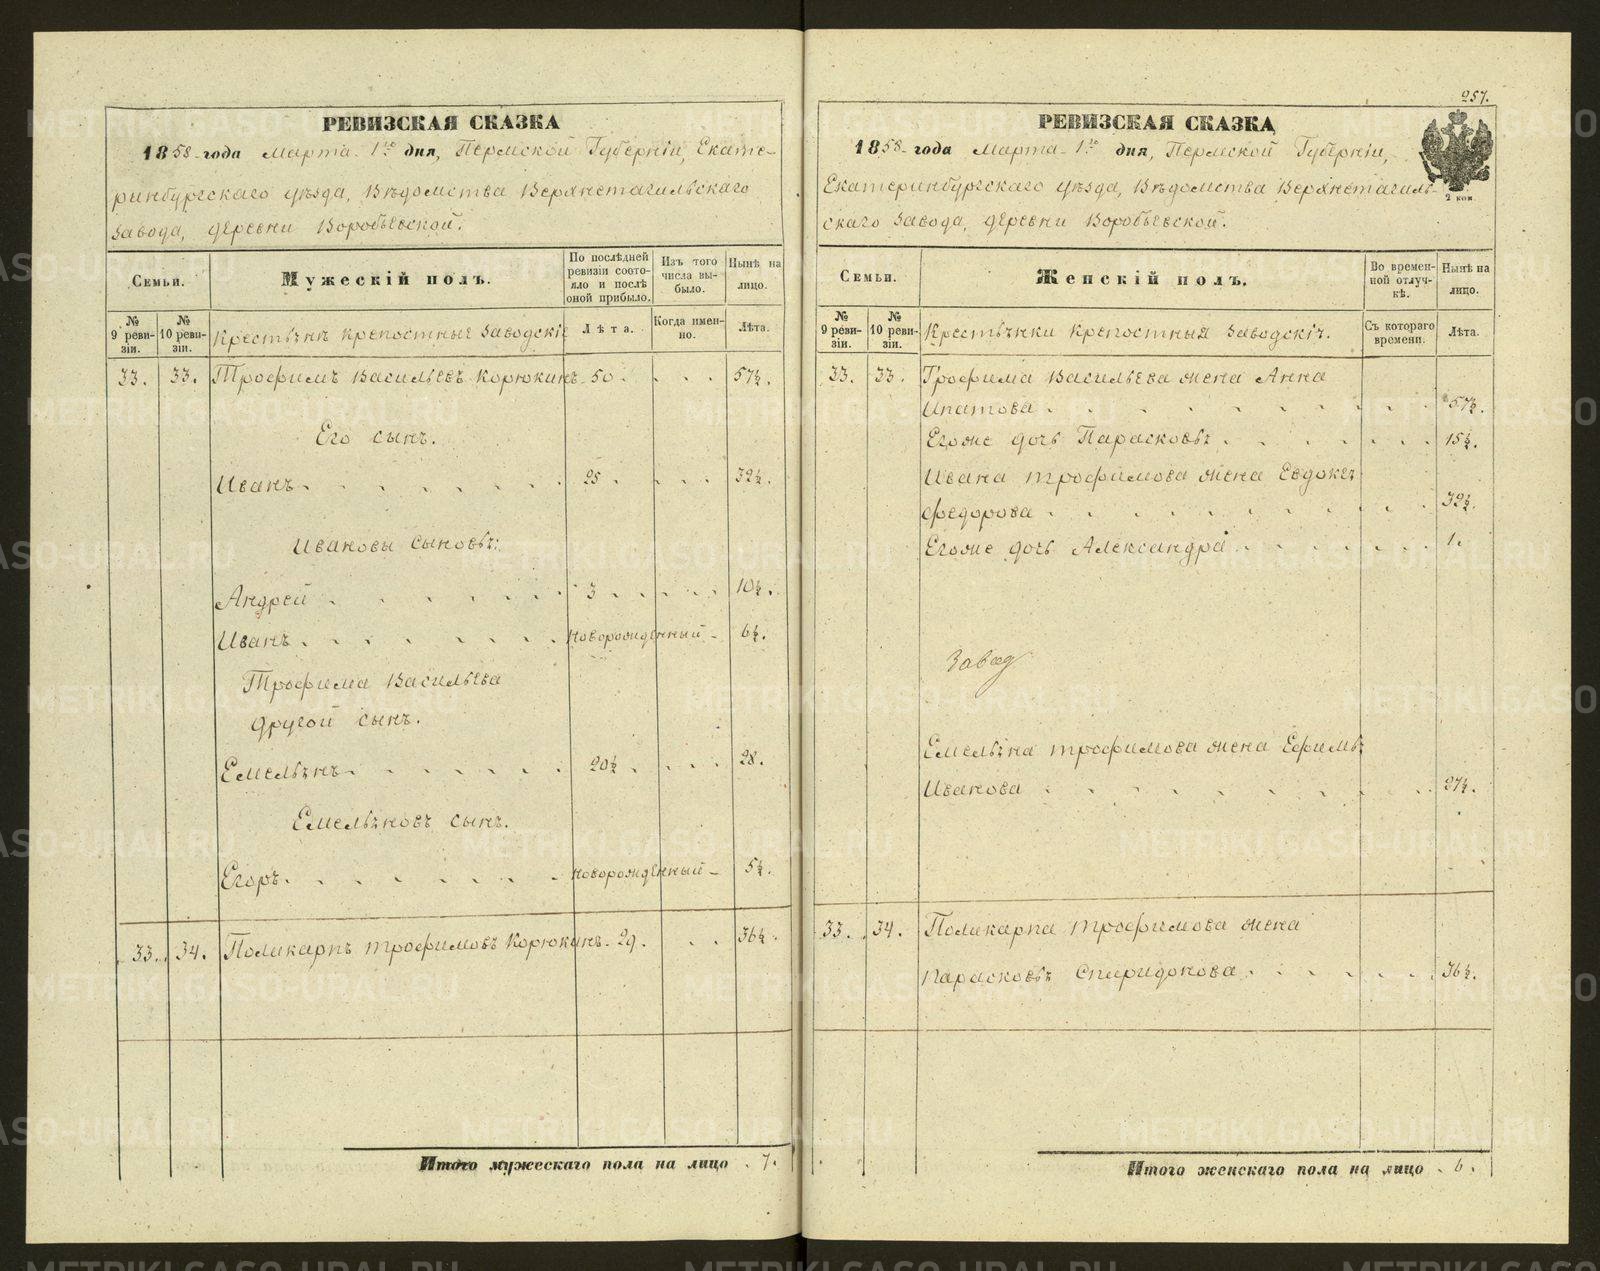 РЕВИЗСКАЯ СКАЗКА
1858 года Марта 1го дня, Пермской Губерніи, Екате-
ринбургскаго уѣзда, Вѣдомства Верхнетагильскаго
завода, деревни Воробьевской.
Семьи.
Мужескій полъ.
По послѣдней ревизіи состояло и послѣ оной прибыло.
Изъ того числа выбыло.
Нынѣ на лицо.
№ 9 ревизіи.
№ 10 ревизіи.
Крестьянѣ крепостные Заводскіе
Лѣта.
Когда именно.
Лѣта.
33. 33. Трофимъ Васильевъ Корюкинъ 50. 57½.
Его сынъ.
Иванъ 25. 32½.
Ивановы сыновья:
Андрей 3 10½.
Иванъ новорожденный 6½.
Трофима Васильева
другой сынъ.
Емельянъ 20½ 28.
Емельяновъ сынъ.
Егоръ новорожденный 5½.
33. 34. Поликарпъ Трофимовъ Корюкинъ 29. 36½.
Итого мужескаго пола на лицо 7.
257.
РЕВИЗСКАЯ СКАЗКА
1858 года Марта 1го дня, Пермской Губерніи,
Екатеринбургскаго уѣзда, Вѣдомства Верхнетагиль-
скаго Завода, деревни Воробьевской.
2 коп
Семьи.
Женскій полъ.
Во временной отлучкѣ.
Нынѣ на лицо.
№ 9 ревизіи.
№ 10 ревизіи.
Крестьянки крепостныя Заводскія.
Съ котораго времени.
Лѣта.
33. 33. Трофима Васильева жена Анна
Ипатова 57½.
Егоже дочь Парасковья 15½.
Ивана Трофимова жена Евдокея
Федорова 32½.
Егоже дочь Александра 1.
Завод
Емельяна Трофимова жена Ефимья
Иванова 27½.
33. 34. Поликарпа Трофимова жена
Парасковья Спиридонова 36½.
Итого женскаго пола на лицо 6.
METRIKI.GASO-URAL.RU